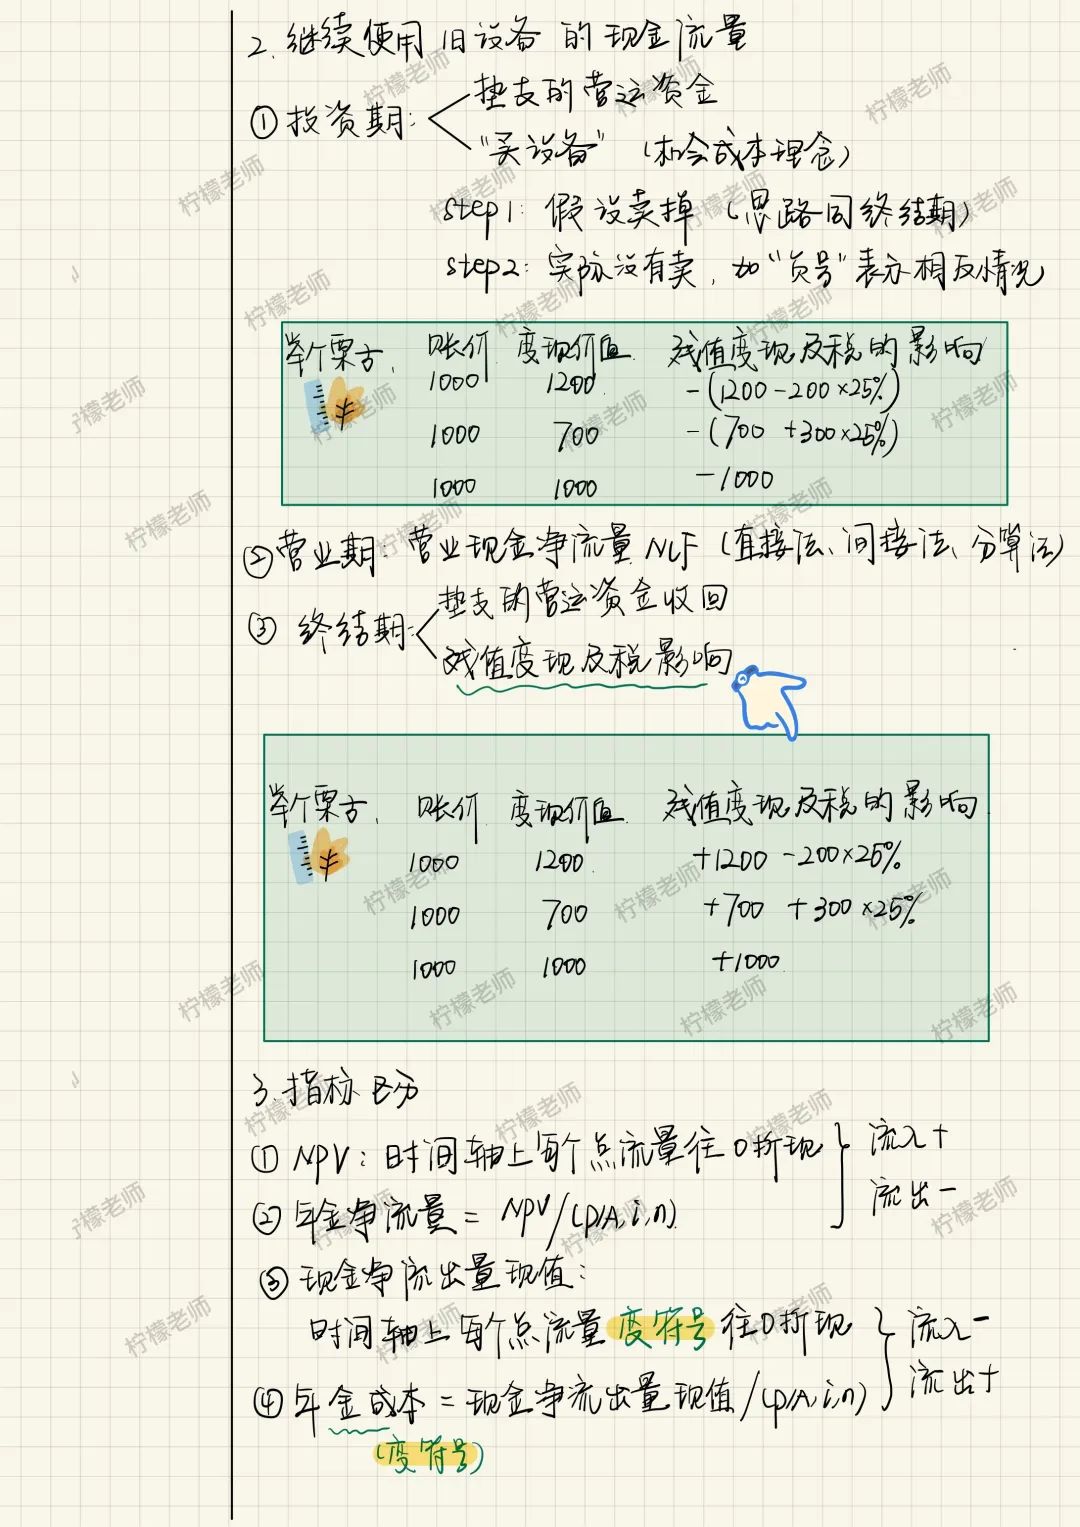 2. 继续使用旧设备的现金流量
① 投资期:
垫支的营运资金
“买设备” (机会成本理念)
step1: 假设卖掉 (思路同终结期)
step2: 实际没有卖, 加“负号”表示相反情况
举个栗子, 账价 变现价值 残值变现及税的影响
1000 1200 -(1200-200×25%)
1000 700 -(700+300×25%)
1000 1000 -1000
② 营业期: 营业现金净流量 NCF (直接法、间接法、分算法)
③ 终结期:
垫支的营运资金收回
残值变现及税影响
举个栗子, 账价 变现价值 残值变现及税的影响
1000 1200 +1200-200×25%
1000 700 +700+300×25%
1000 1000 +1000
3. 指标区分
① NPV: 时间轴上每个点流量往0折现
② 年金净流量 = NPV/(P/A,i,n)
流入+
流出-
③ 现金净流出量现值:
时间轴上每个点流量变符号往0折现
④ 年金成本 = 现金净流出量现值/(P/A,i,n)
(变符号)
流入-
流出+
柠檬老师